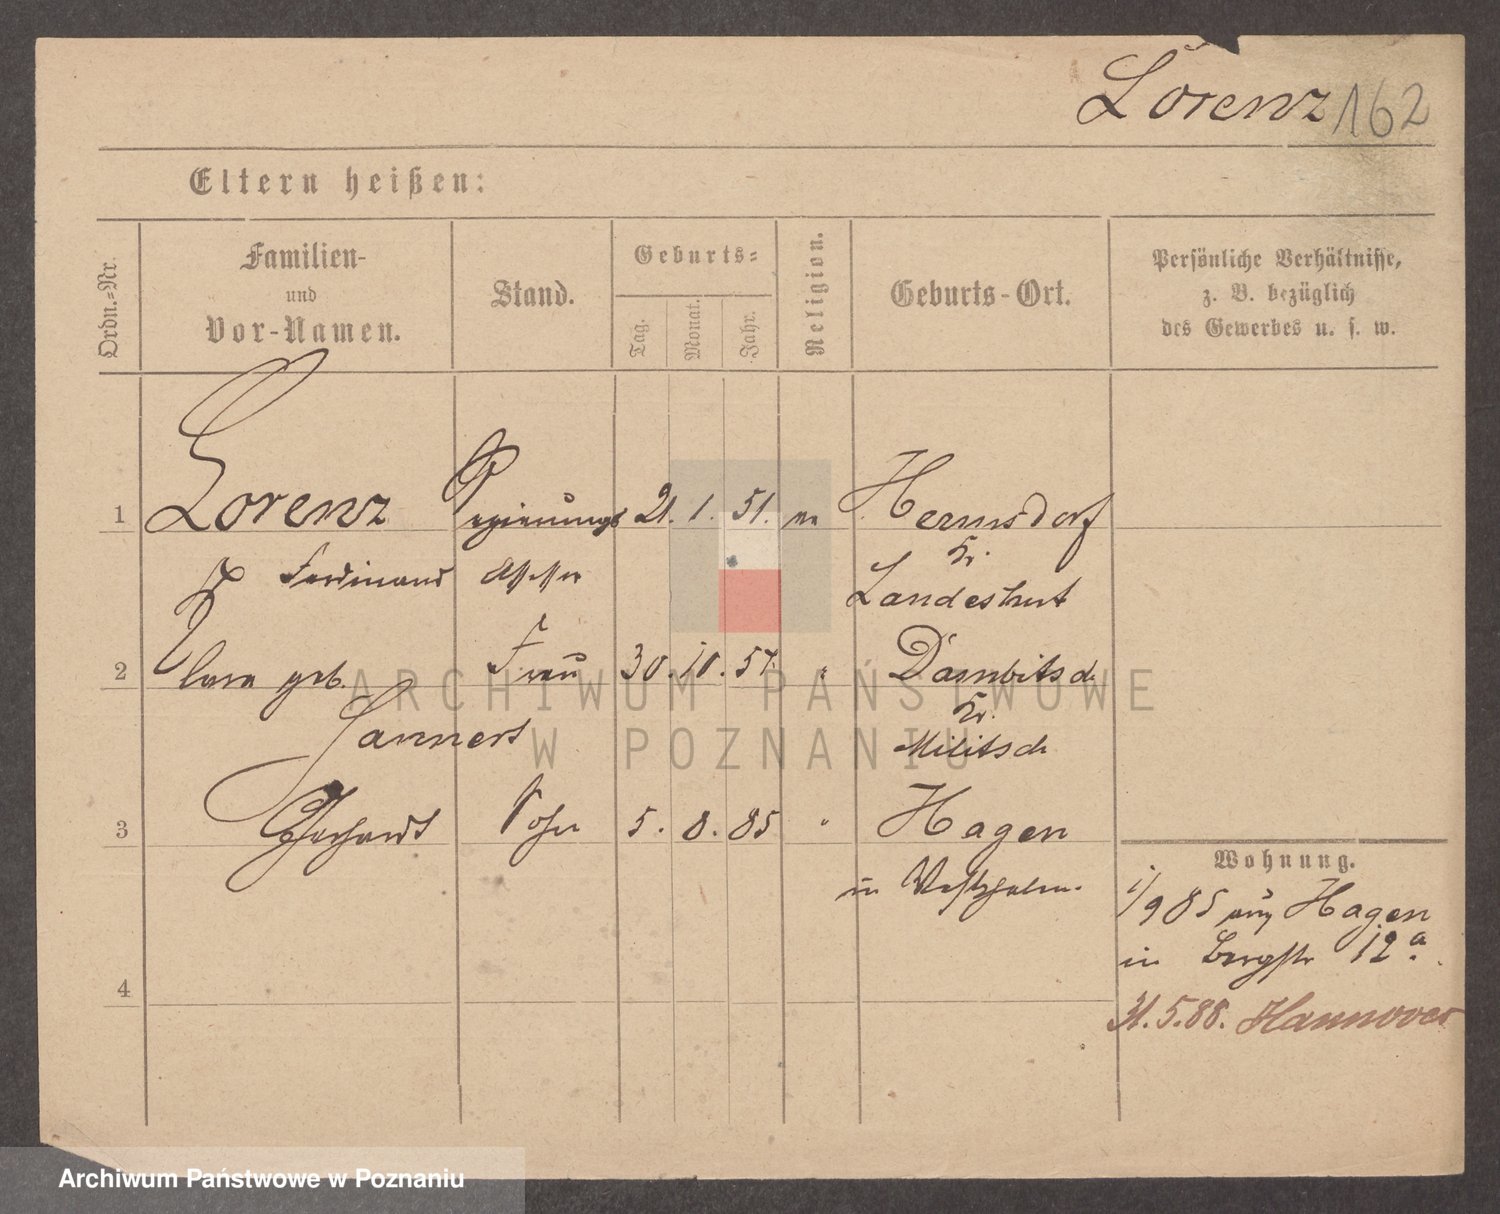 Lorenz 162
Eltern heißen:
Ordn.=Nr.
Familien-
und
Vor-Namen.
Stand.
Geburts=
Tag.
Monat.
Jahr.
Religion.
Geburts-Ort.
Persönliche Verhältnisse,
z. B. bezüglich
des Gewerbes u. s. w.
1 Lorenz Regierungs 21. 1. 51. ev Hermsdorf
Ferdinand Assessor Kr.
Landeshut
2 Clara geb. Frau 30. 10. 57. " Dambitsch
Kr.
Militsch
3 Gerhardt Sohn 5. 8. 85 " Hagen
in Westphalen.
Wohnung.
1/9 85 aus Hagen
in Bergstr 12a.
4
31.5.88. Hannover
ARCHIWUM PAŃSTWOWE
W POZNANIU
Archiwum Państwowe w Poznaniu